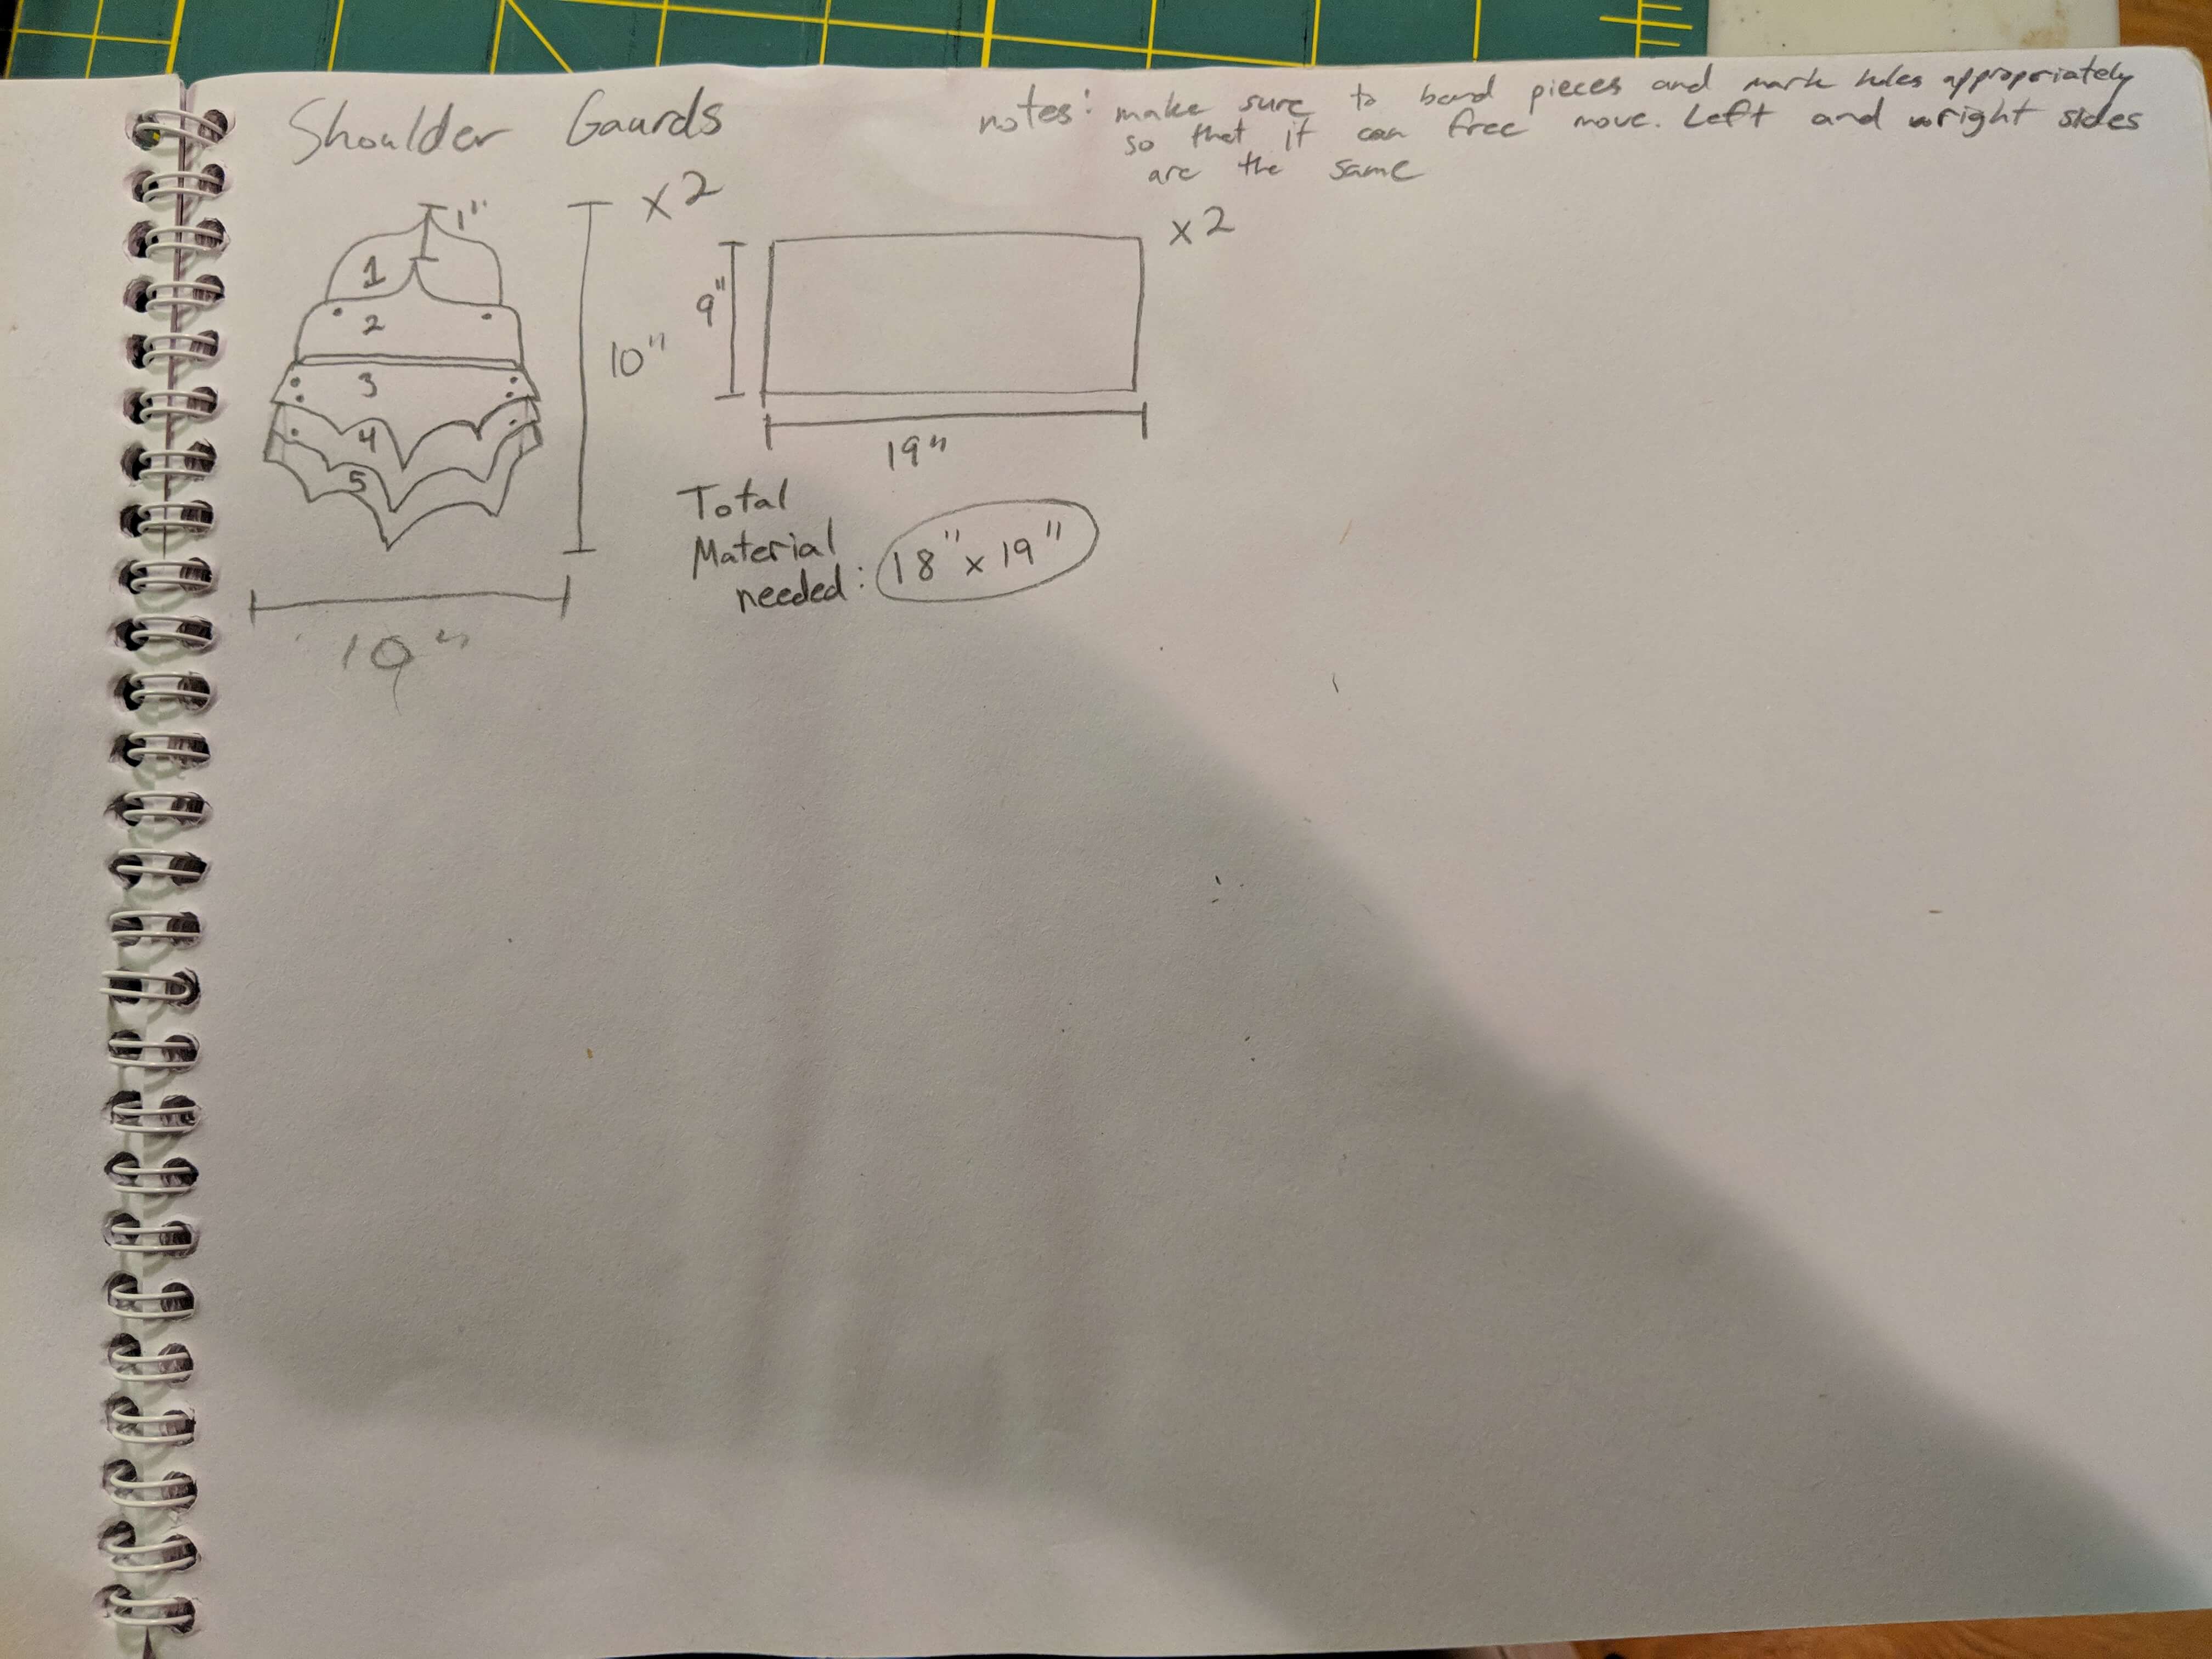 Shoulder Gaurds
notes: make sure to bend pieces and mark holes appropriately
so that it can free move. Left and wright sides
are the same
x2
1"
1
2
3
4
5
10"
x2
9"
19"
Total
Material
needed: 18" x 19"